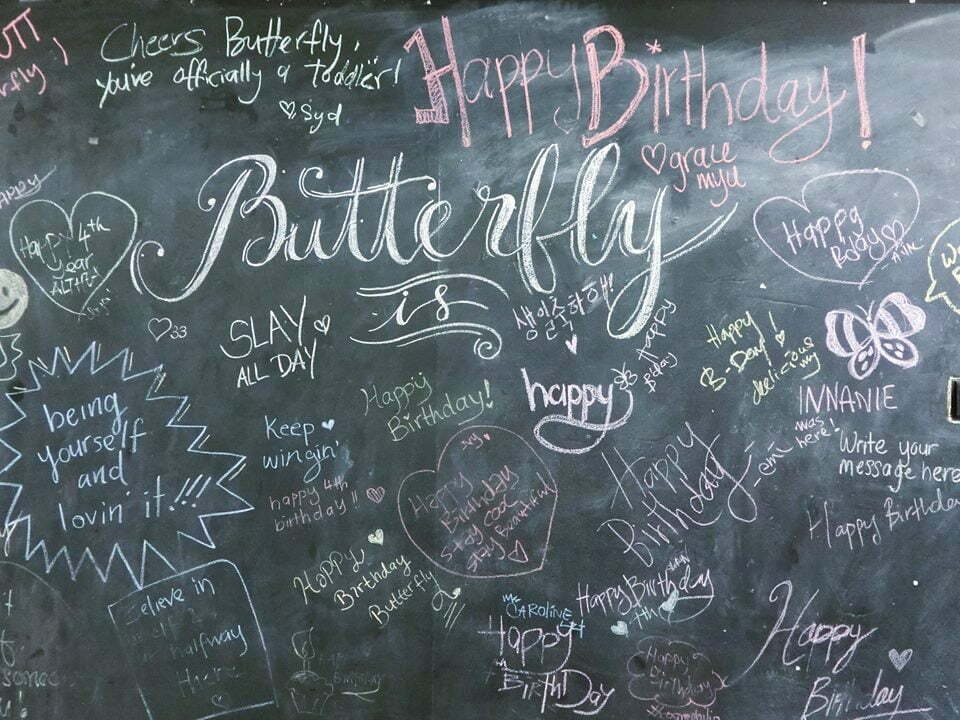 Cheers Butterfly,
you've officially a toddler!
♡Syd
Happy Birthday!
♡grace
myu
Butterfly
is
Happy 4th
Year
Happy
Bday♡
♡33
SLAY♡
ALL DAY
생일축하해!
Happy
Bday
Happy
B-Day!
delicious
my
being
yourself
and
lovin' it!!!
Keep
wingin'
Happy
Birthday!
happy
INNANIE
was
here!
Write your
message here
happy 4th
birthday!!
Happy
Birthday
stay cool
stay beautiful
Happy
Birthday
Happy Birthday
Happy
Birthday
Butterfly
Believe in
halfway
there
CAROLINE
Happy
BirthDay
Happy Birthday
Happy
birthday
Happy
Birthday